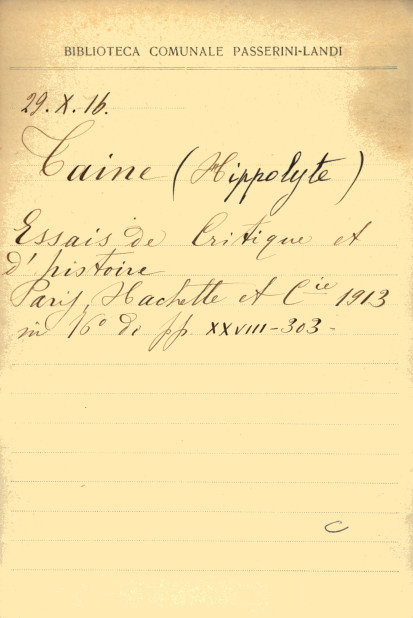 BIBLIOTECA COMUNALE PASSERINI-LANDI
29.X.16.
Taine (Hippolyte)
Essais de Critique et
d'histoire
Paris, Hachette et Cie 1913
in 16° di pp. XXVIII-303-
C